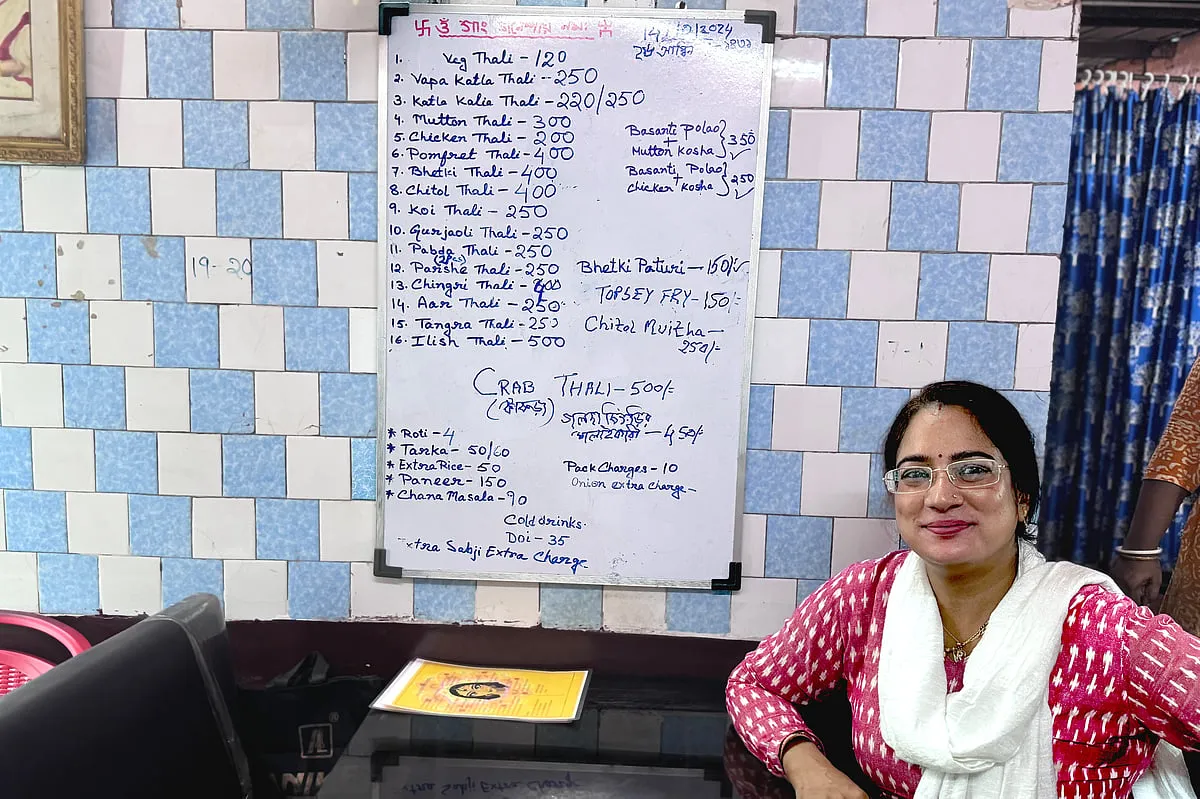 卐 ওঁ গাং গনেশায় নমঃ 卐
2024
1. Veg Thali - 120
2. Vapa Katla Thali - 250
3. Katla Kalia Thali - 220/250
4. Mutton Thali - 300
5. Chicken Thali - 200
6. Pomfret Thali - 400
7. Bhetki Thali - 400
8. Chitol Thali - 400
9. Koi Thali - 250
10. Gurjaoli Thali - 250
11. Pabda Thali - 250
12. Parishe Thali - 250
13. Chingri Thali - 400
14. Aar Thali - 250
15. Tangra Thali - 250
16. Ilish Thali - 500
Basanti Polao
+
Mutton Kosha } 350
Basanti Polao
+
Chicken Kosha } 250
Bhetki Paturi - 150/-
TOPSEY FRY - 150/-
Chitol Muitha -
250/-
CRAB THALI - 500/-
(কাঁকড়া)
গলদা চিংড়ির
মালাইকারী - 450/-
* Roti - 4
* Tarka - 50/60
* Extra Rice - 50
* Paneer - 150
* Chana Masala - 90
Pack Charges - 10
Onion extra charge -
Cold drinks.
Doi - 35
xtra Sabji Extra Charge
19-20